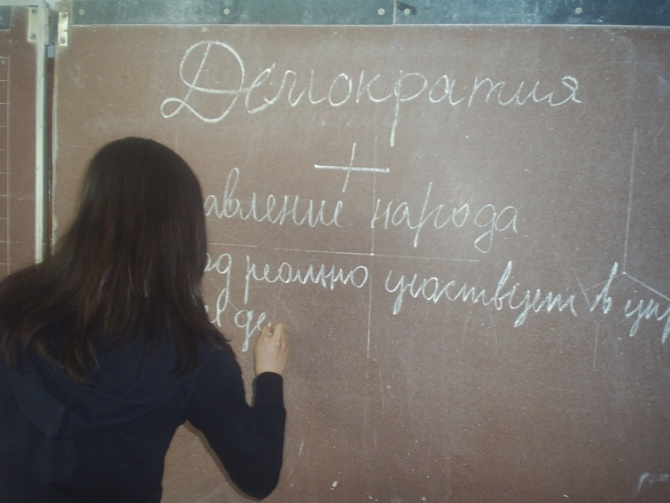 Демократия
+
авление народа
од реально участвует в упр
де